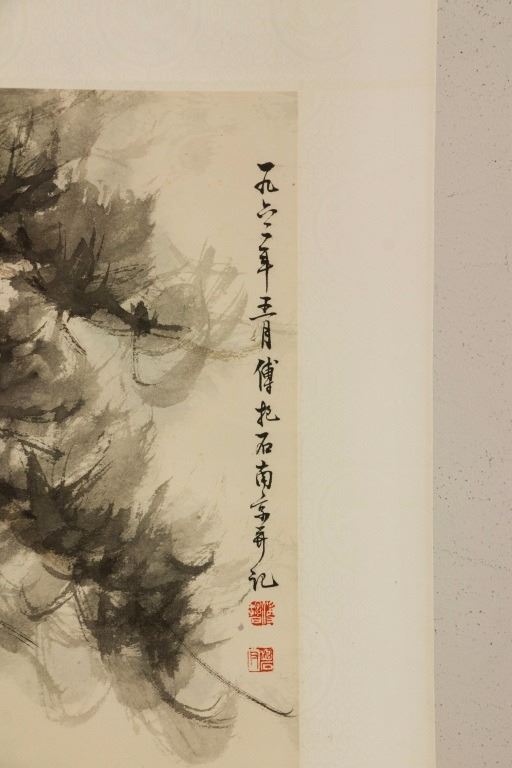 一九六二年五月傅抱石南京并记